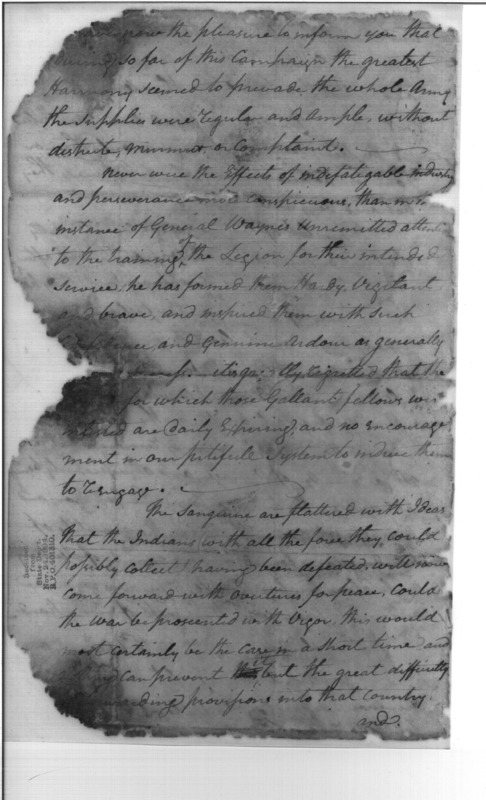 now the pleasure to inform you that
so far of this Campaign the greatest
Harmony seemed to prevade the whole Army
the supplies were regular and Ample, without
distrute, murmur, or Complaint.
Never were the Effects of indefatigable industry
and perseverance more conspicuous, than in
instance of General Wayne's Unremitted atten
to the training of the Legion for their intended
Service, he has formed them Hardy, Vigilant
and brave, and inspired them with such
and Genuine Ardour as generally
regretted that the
for which those Gallant fellows were
are daily Expiring, and no encourage
ment in our pitifull System to induce them
to Rengage.
The Sanguine are flattered with Ideas
that the Indians, with all the force they could
possibly collect having been defeated, will
come forward with overtures for peace, could
the War be prosecuted with Vigor, this would
most certainly be the case in a short time and
can prevent it but the great difficulty
provisions into that Country.
and.
Received
from
State Dept.